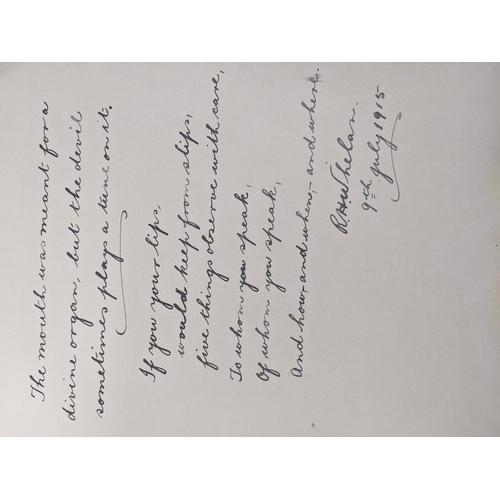 The mouth was meant for a
divine organ, but the devil
sometimes plays a tune on it.
If you your lips,
would keep from slips,
five things observe with care,
To whom you speak,
Of whom you speak,
And how, and when, - and where.
R.H. Whelan.
9th July 1915